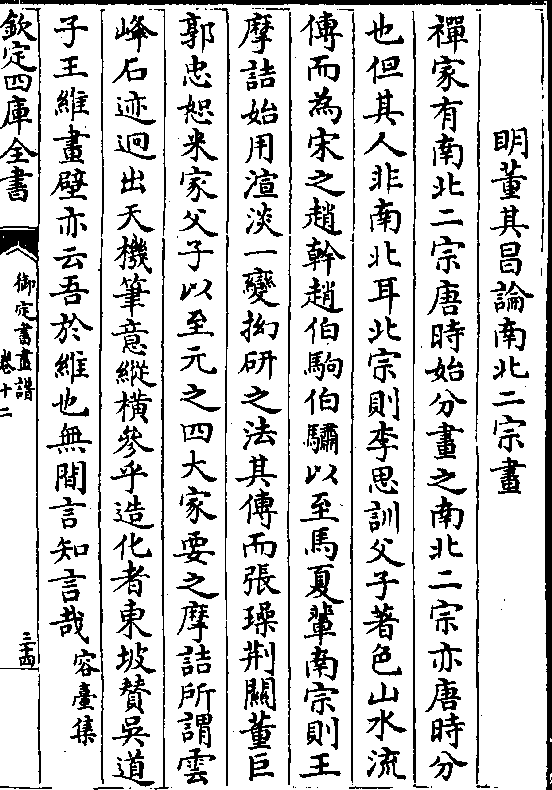 明董其昌論南北二宗畫
禪家有南北二宗唐時始分畫之南北二宗亦唐時分
也但其人非南北耳北宗則李思訓父子著色山水流
傳而為宋之趙幹趙伯駒伯驌以至馬夏輩南宗則王
摩詰始用渲淡一變拘研之法其傳而張璪荆關董巨
郭忠恕米家父子以至元之四大家要之摩詰所謂雲
峰石迹迥出天機筆意縱橫參乎造化者東坡贊吳道
子王維畫壁亦云吾於維也無間言知言哉容臺集
欽定四庫全書
御定書畫譜
卷十二
三十四